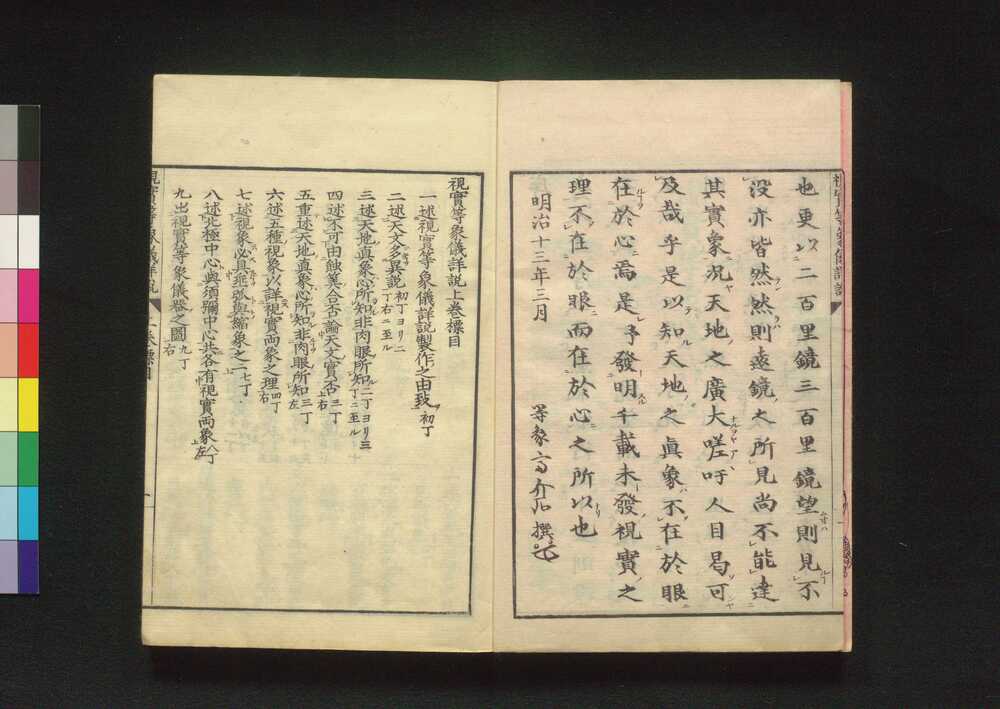 也更以二百里鏡三百里鏡望則見不
没亦皆然然則遠鏡之所見尚不能達
其實象况天地之廣大嗟吁人目曷可
及哉乎是以知天地之眞象不在於眼
在於心焉是予發明千載未發視實之
理不在於眼而在於心之所以也
明治十三年三月
等象齋介石撰
視實等象儀詳説上卷標目
一述視實等象儀詳説製作之由致 初丁
二述天文多異説 初丁ヨリ二丁右ニ至ル
三述天地眞象心所知非肉眼所知 二丁ヨリ三丁ニ至ル
四述不可由蝕算合否論天文實否 三丁右
五重述天地眞象心所知非肉眼所知 三丁左
六述五種視象以詳視實兩象之理 四丁右
七述視象必具垂弧與縮象之二 七丁
八述北極中心與須彌中心共各有視實兩象 八丁左
九出視實等象儀器之圖 九丁右